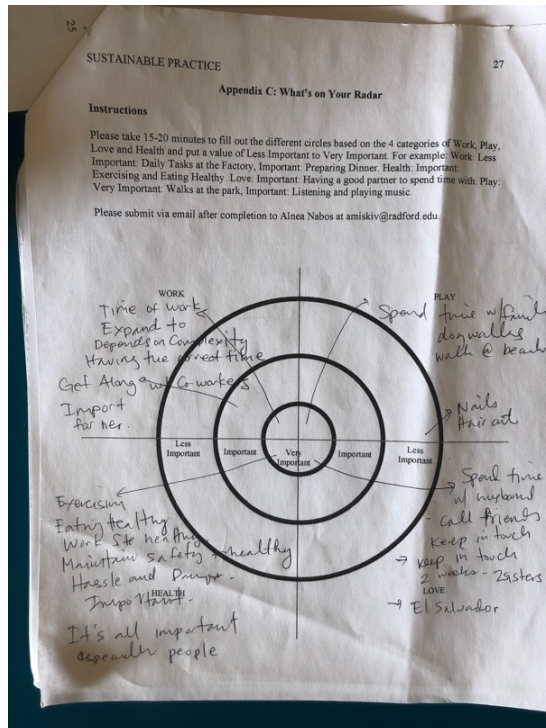 25
SUSTAINABLE PRACTICE
27
Appendix C: What's on Your Radar
Instructions
Please take 15-20 minutes to fill out the different circles based on the 4 categories of Work, Play,
Love and Health and put a value of Less Important to Very Important. For example: Work: Less
Important: Daily Tasks at the Factory, Important: Preparing Dinner. Health: Important:
Exercising and Eating Healthy Love: Important: Having a good partner to spend time with. Play:
Very Important: Walks at the park, Important: Listening and playing music.
Please submit via email after completion to Alnea Nabos at amiskiv@radford.edu.
WORK
Time of work
Expand to
Depends on Complexity
Having the correct time
Get Along w/ Co-workers
Import
for her.
PLAY
Spend time w/
dogwalks
walk @ beach
Nails
Haircut
Less
Important
Important
Very
Important
Important
Less
Important
Exercising
Eating Healthy
Work healthy
Maintain safety + healthy
Hassle and
Important.
HEALTH
It's all important
people
Spend time
w/ husband
- call friends
Keep in touch
→ keep in touch
2 weeks - 2 sisters
LOVE
→ El Salvador